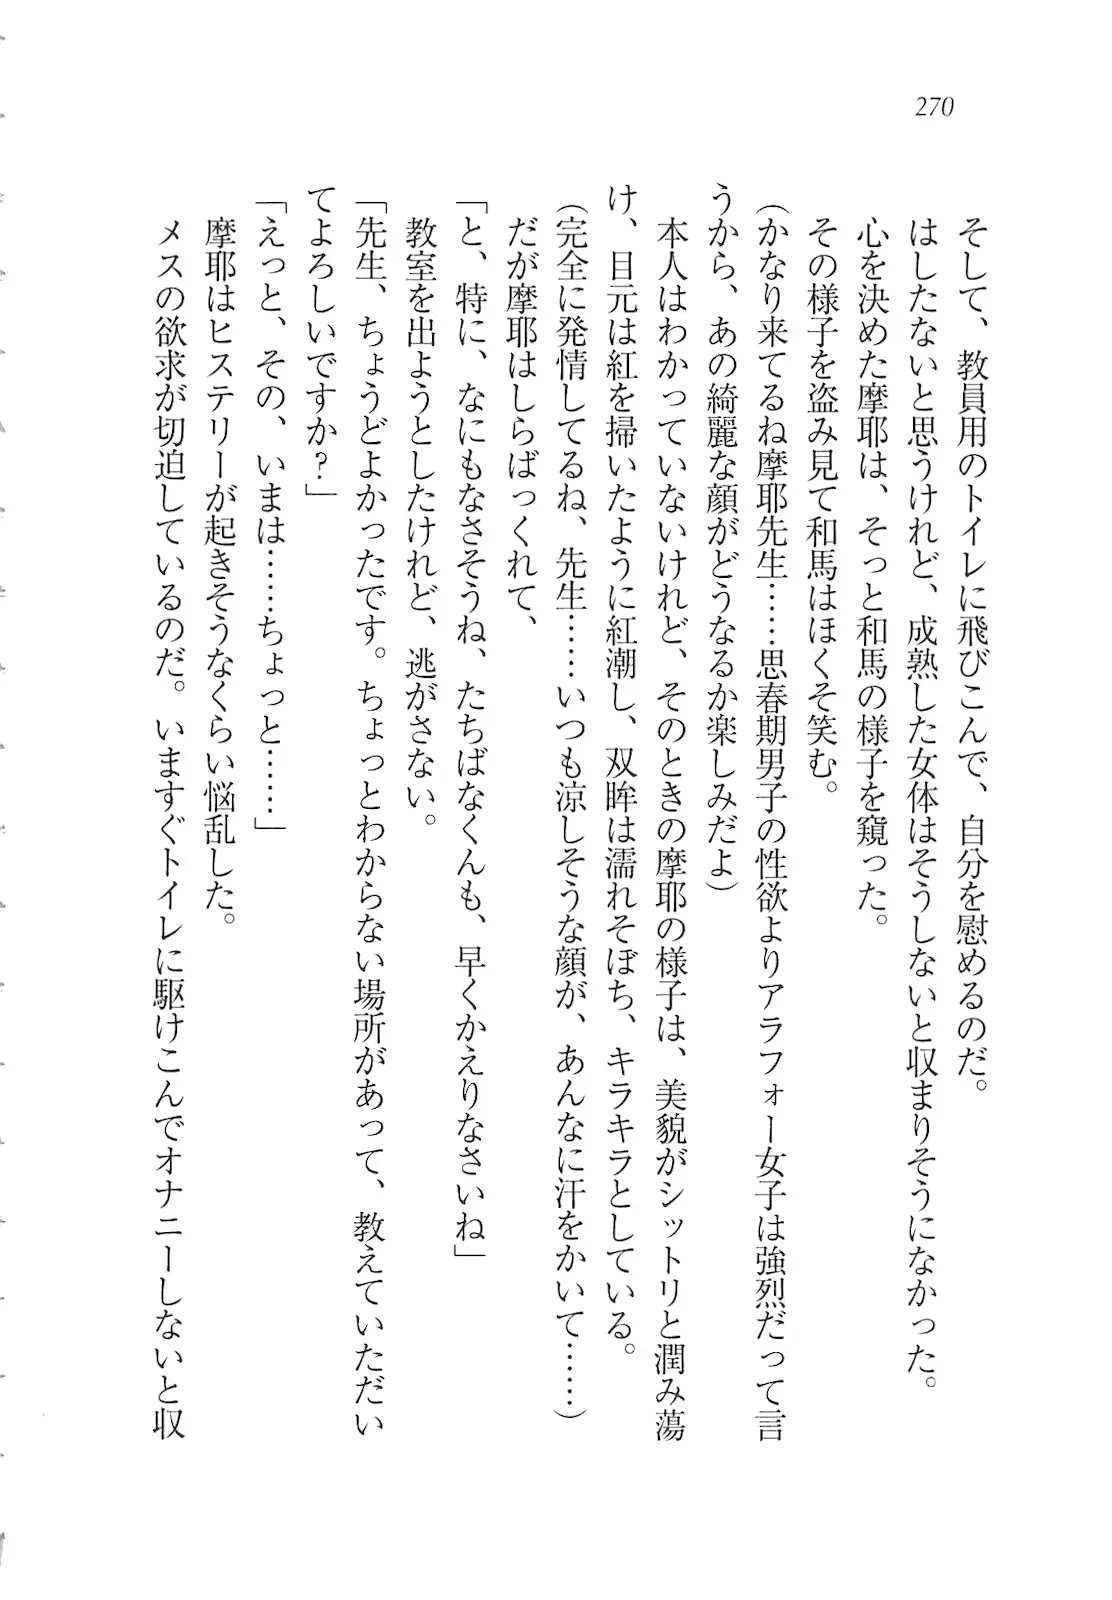 270
そして、教員用のトイレに飛びこんで、自分を慰めるのだ。
はしたないと思うけれど、成熟した女体はそうしないと収まりそうになかった。
心を決めた摩耶は、そっと和馬の様子を窺った。
その様子を盗み見て和馬はほくそ笑む。
(かなり来てるね摩耶先生……思春期男子の性欲よりアラフォー女子は強烈だって言
うから、あの綺麗な顔がどうなるか楽しみだよ)
本人はわかっていないけれど、そのときの摩耶の様子は、美貌がシットリと潤み蕩
け、目元は紅を掃いたように紅潮し、双眸は濡れそぼち、キラキラとしている。
(完全に発情してるね、先生……いつも涼しそうな顔が、あんなに汗をかいて……)
だが摩耶はしらばっくれて、
「と、特に、なにもなさそうね、たちばなくんも、早くかえりなさいね」
教室を出ようとしたけれど、逃がさない。
「先生、ちょうどよかったです。ちょっとわからない場所があって、教えていただい
てよろしいですか?」
「えっと、その、いまは……ちょっと……」
摩耶はヒステリーが起きそうなくらい悩乱した。
メスの欲求が切迫しているのだ。いますぐトイレに駆けこんでオナニーしないと収